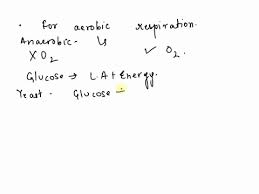 . for aerobic respiration.
Anaerobic. ↳
X O₂ ✓ O₂.
Glucose → LA + Energy.
Yeast. Glucose →